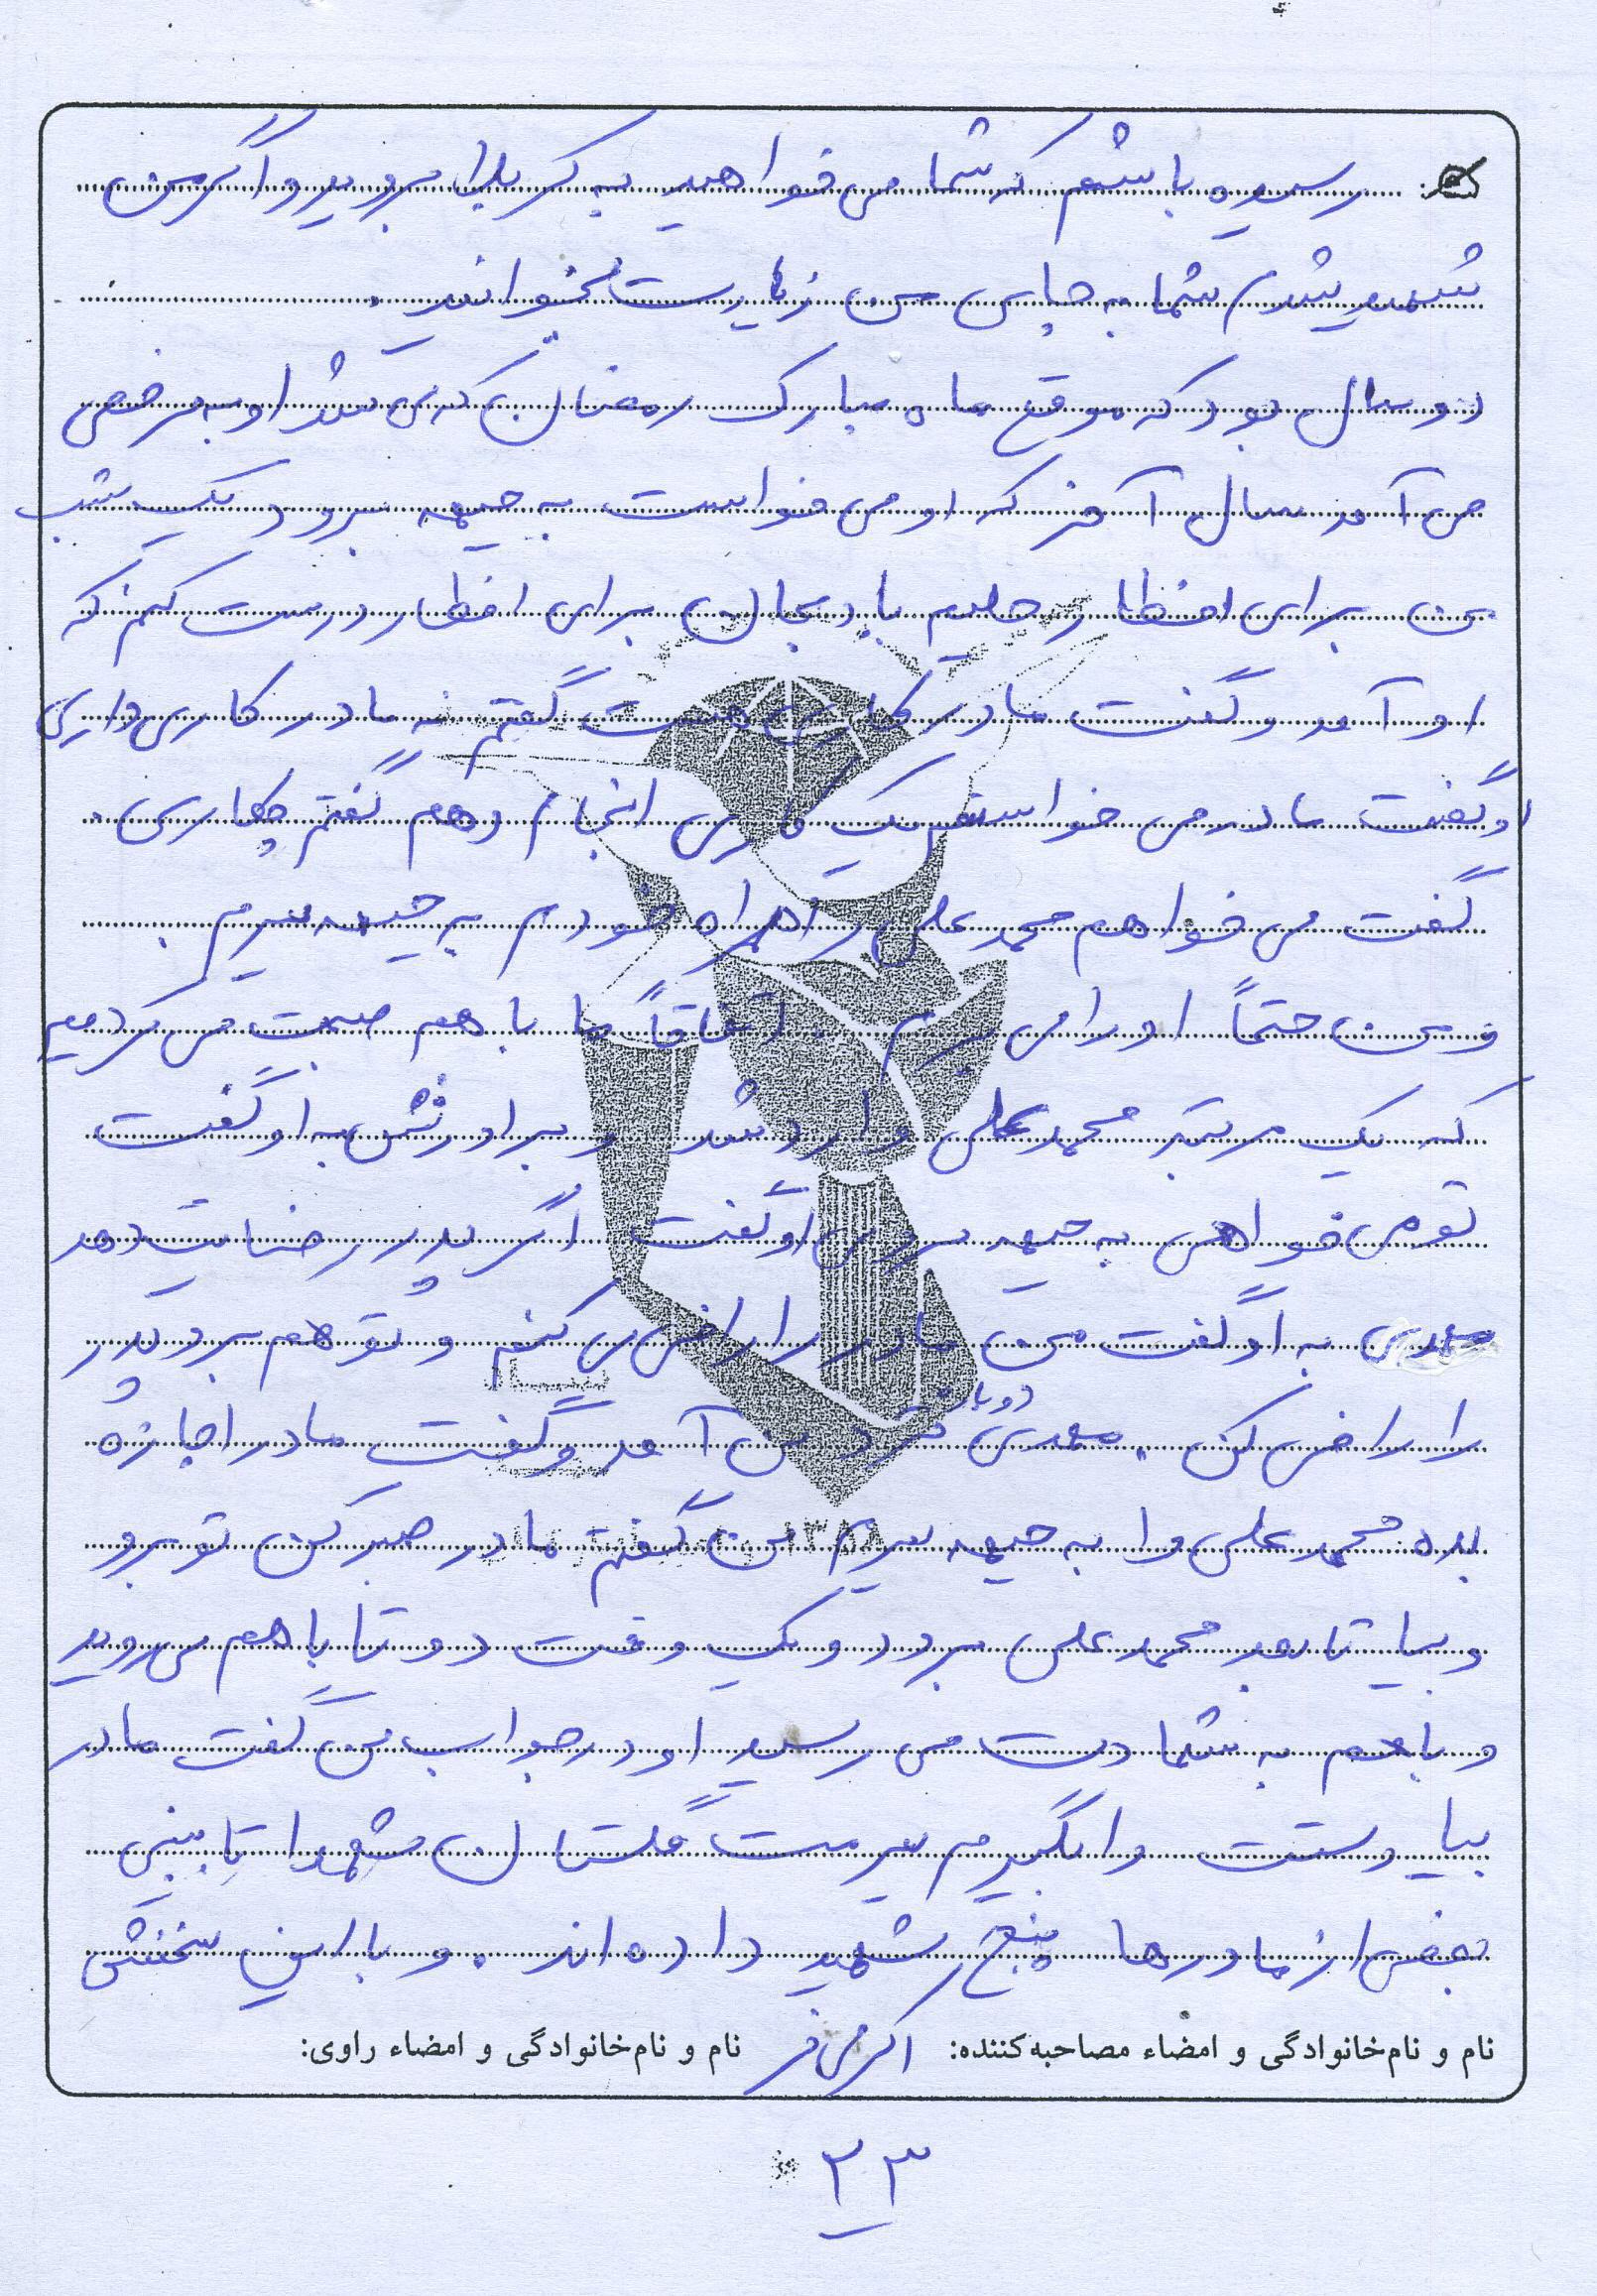 رسیده باشم که شما می خواهید به کربلا بروید و اگر من
شهید شدم شما به جای من زیارت بخوانید .
دو سال بود که موقع ماه مبارک رمضان که می شد او به مرخصی
می آمد سال آخر که او می خواست به جبهه برود یک شب
من برای افطار حلیم بادمجان برای افطار درست کنم که
او آمد و گفت مادر کاری هست گفتم نه مادر کاری داری
او گفت مادر می خواستم یک کاری انجام دهم گفتم چکاری .
گفت می خواهم محمد علی را همراه خودم به جبهه ببرم .
و من حتماً او را می برم . اتفاقاً ما با هم صحبت می کردیم
که یک مرتبه محمد علی وارد شد و برادرش به او گفت
تو می خواهی به جبهه بروی او گفت اگر پدر رضایت دهد
مهدی به او گفت من مادر را راضی می کنم و تو هم برو پدر
را راضی کن . مهدی دوباره نزد من آمد و گفت مادر اجازه
بده محمد علی را به جبهه ببرم من گفتم مادر صبر کن تو برو
و بیا تا بعد محمد علی برود و یک وقت دو تا با هم می روید
و با هم به شهادت می رسید او در جواب من گفت مادر
بیا دستت را بگیرم ببرمت گلستان شهدا تا ببینی
بعضی از مادرها پنج شهید داده اند . و با این سخنش
نام و نام‌خانوادگی و امضاء مصاحبه‌کننده: نام و نام‌خانوادگی و امضاء راوی:
۲۳